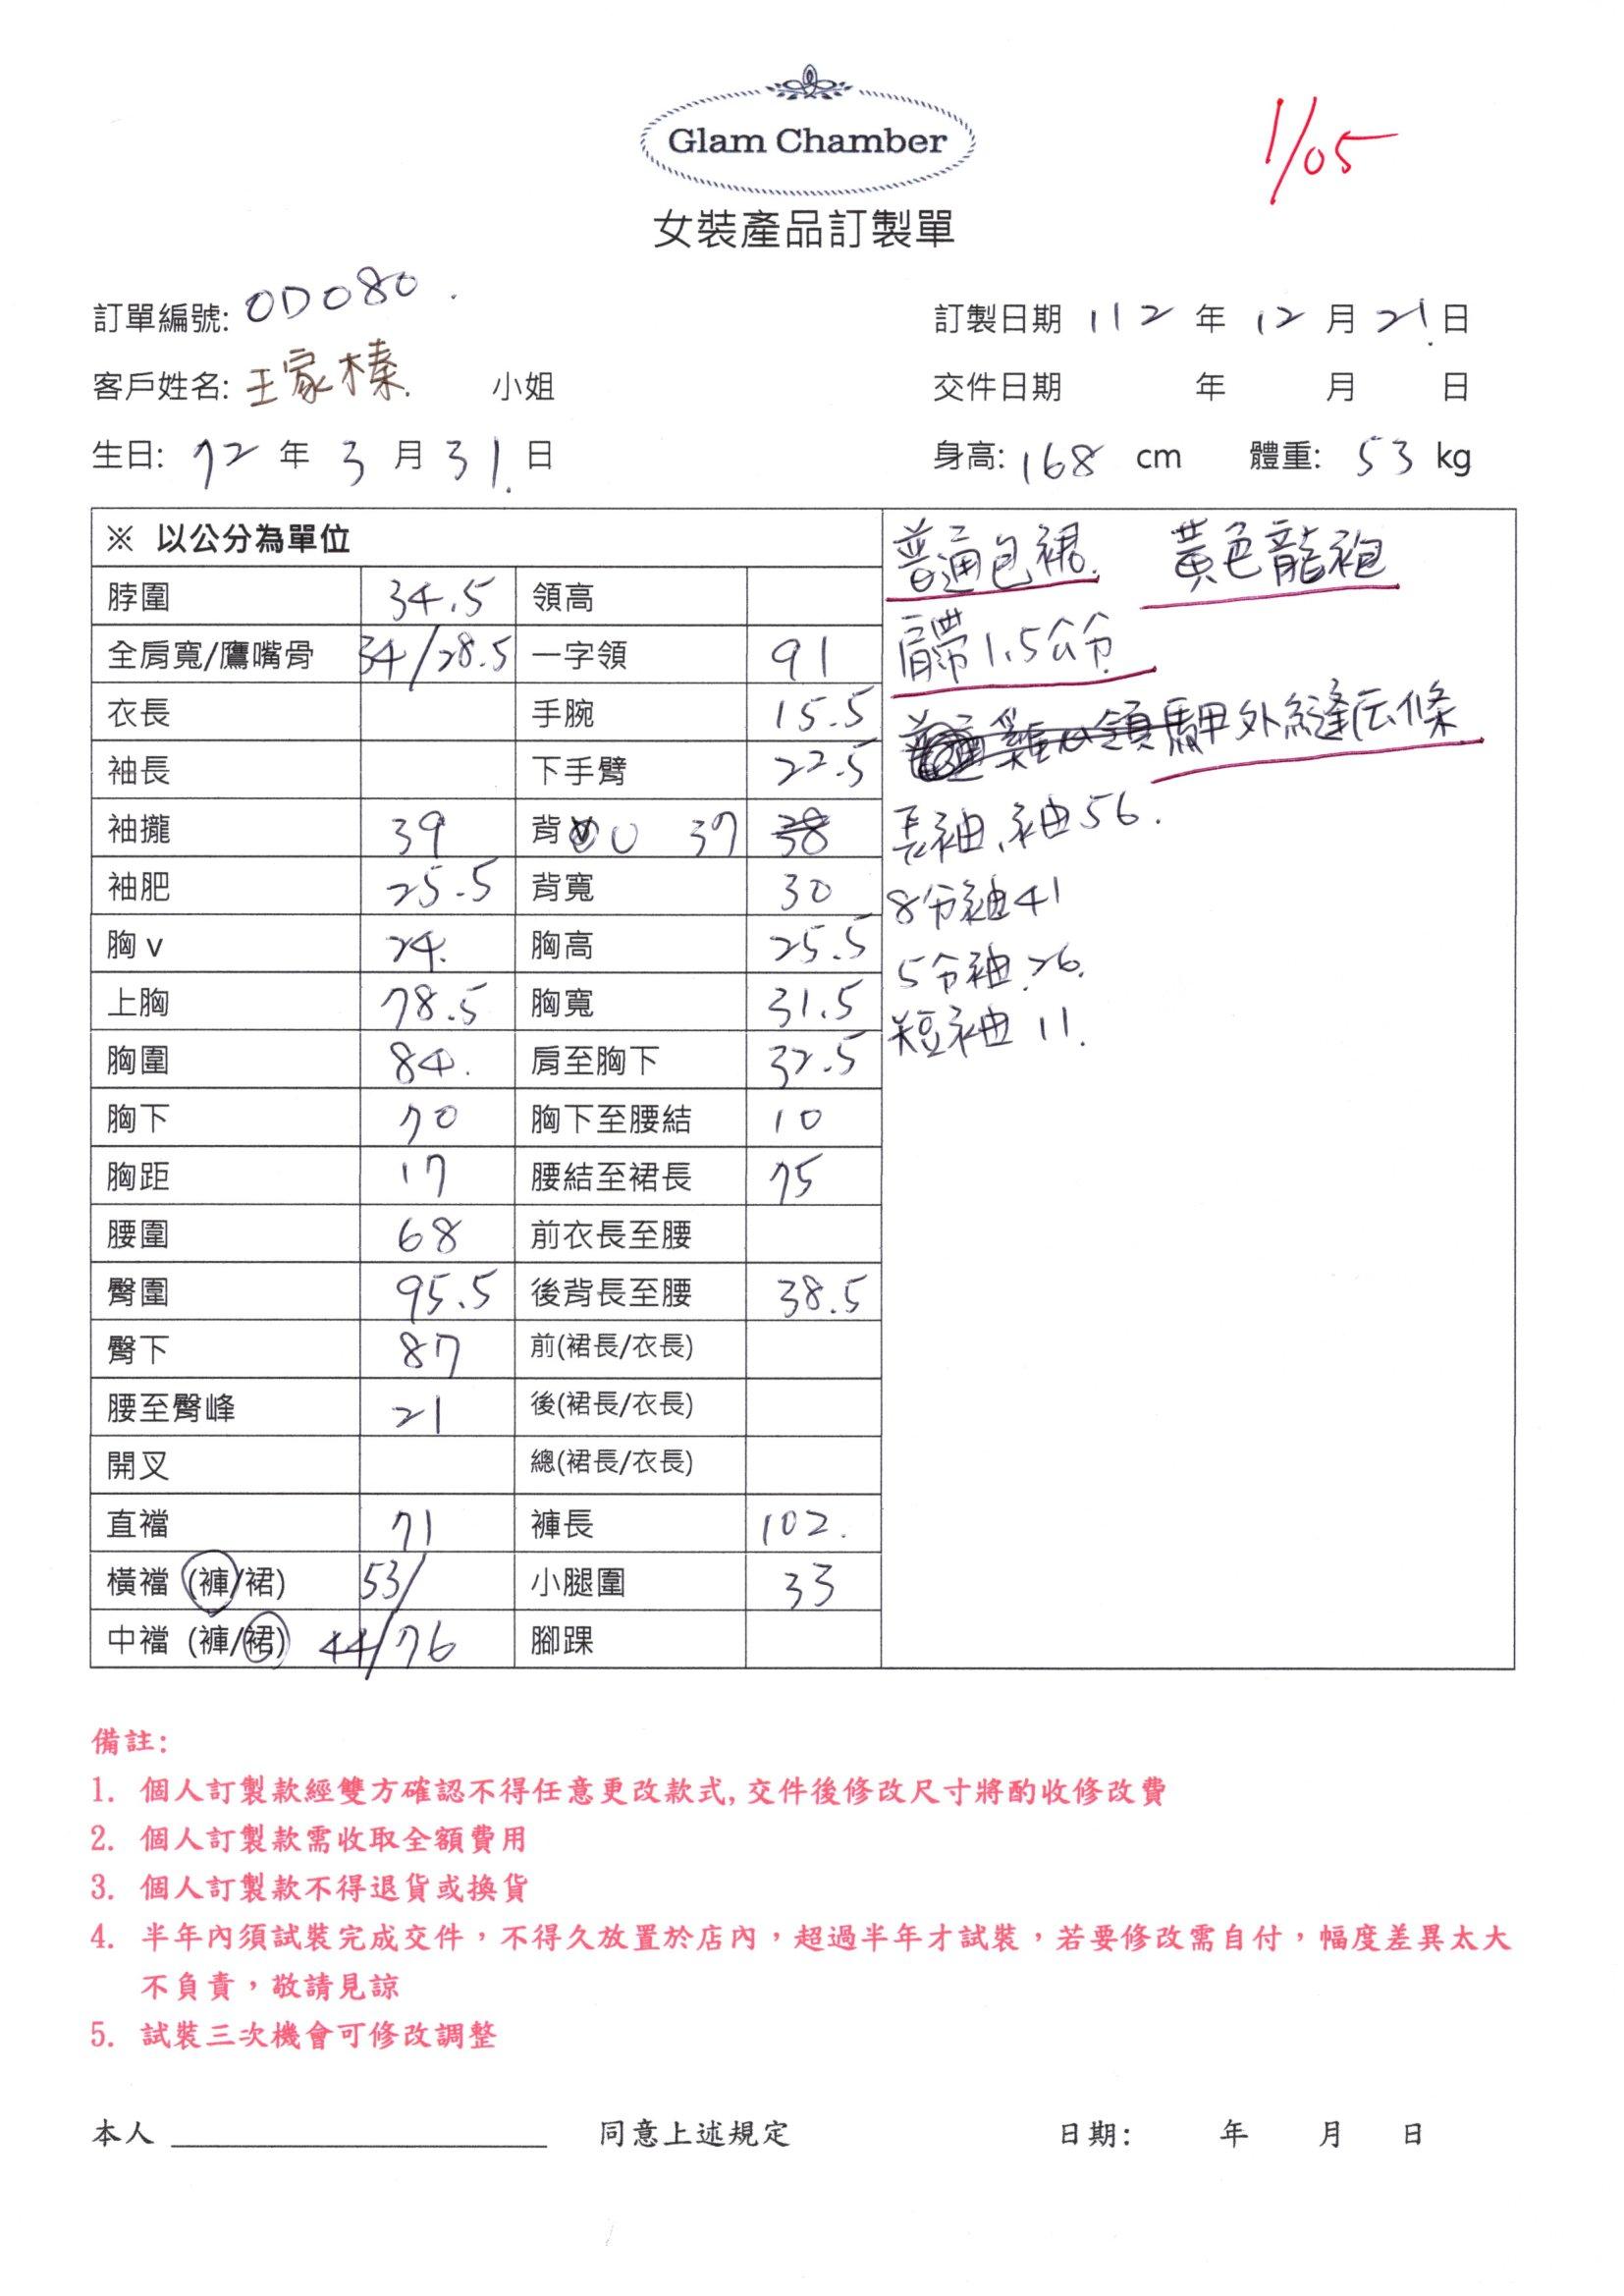 Glam Chamber
1/05
女裝產品訂製單
訂單編號: OD080.
訂製日期 112 年 12 月 21 日
客戶姓名: 王家榛 小姐
交件日期 年 月 日
生日: 72 年 3 月 31 日
身高: 168 cm 體重: 53 kg
※ 以公分為單位
脖圍 34.5 領高
全肩寬/鷹嘴骨 34/28.5 一字領 91
衣長 手腕 15.5
袖長 下手臂 22.5
袖攏 39 背 U 37 38
袖肥 25.5 背寬 30
胸v 24. 胸高 25.5
上胸 78.5 胸寬 31.5
胸圍 84. 肩至胸下 32.5
胸下 70 胸下至腰結 10
胸距 17 腰結至裙長 75
腰圍 68 前衣長至腰
臀圍 95.5 後背長至腰 38.5
臀下 87 前(裙長/衣長)
腰至臀峰 21 後(裙長/衣長)
開叉 總(裙長/衣長)
直襠 71 褲長 102.
橫襠 (褲/裙) 53/ 小腿圍 33
中襠 (褲/裙) 44/76 腳踝
普通包裙. 黃色龍袍
肩帶1.5公分
雞心領 馬甲外縫压條
長袖、袖56.
8分袖41
5分袖26.
短袖 11.
備註:
1. 個人訂製款經雙方確認不得任意更改款式,交件後修改尺寸將酌收修改費
2. 個人訂製款需收取全額費用
3. 個人訂製款不得退貨或換貨
4. 半年內須試裝完成交件，不得久放置於店內，超過半年才試裝，若要修改需自付，幅度差異太大
不負責，敬請見諒
5. 試裝三次機會可修改調整
本人 同意上述規定 日期: 年 月 日